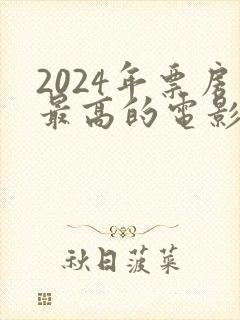 2024年票房
最高的电影
秋日菠菜